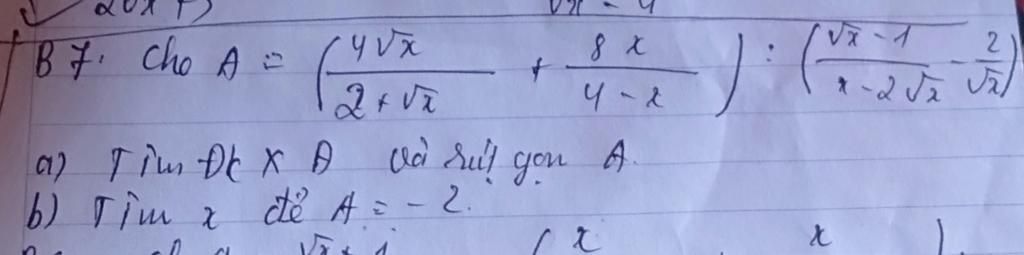 B7. Cho A = (4√x / 2+√x + 8x / 4-x) : (√x-1 / x-2√x - 2/√x)
a) Tìm Đk X Đ và rút gọn A.
b) Tìm x để A = -2.